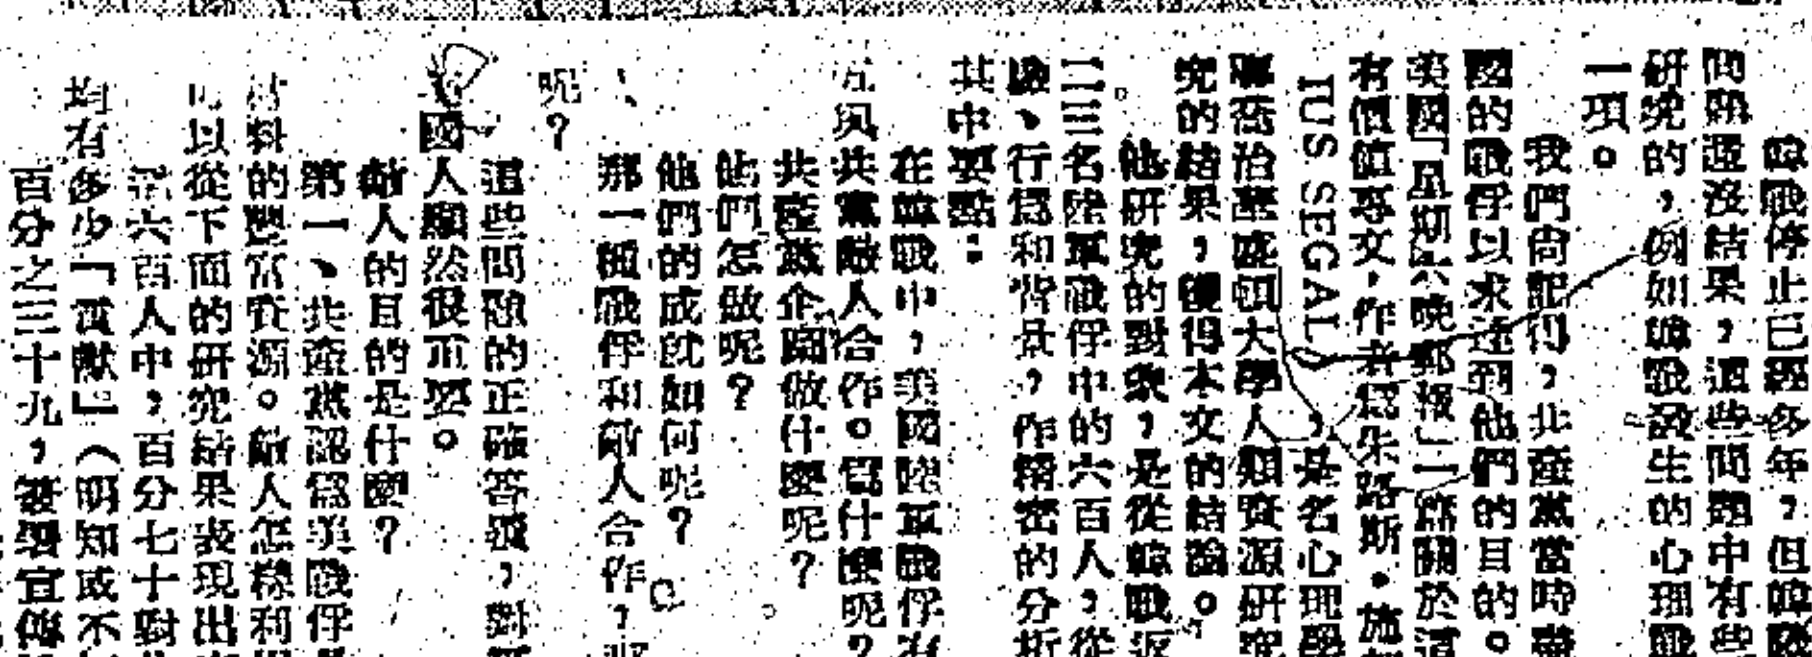 韓戰停止已經多年，但韓戰
問題還沒結果，這些問題中有些
研究的，例如韓戰發生的心理戰
一項。
我們尚記得，共產黨當時盡
國的戰俘以求達到他們的目的。
美國「星期六晚郵報」一篇關於這
有價值專文，作者爲朱路斯・施
IUS SEGAL），是名心理學
喬治華盛頓大學人類資源研究
究的結果，獲得本文的結論。
他研究的對象，是從韓戰返
二三名陸軍戰俘中的六百人，從
、行爲和背景，作精密的分析
其中要點：
在韓戰中，美國陸軍戰俘有
與共黨敵人合作。爲什麼呢？
共產黨企圖做什麼呢？
他們怎做呢？
他們的成就如何呢？
那一種戰俘和敵人合作，
呢？
這些問題的正確答覆，對
國人顯然很重要。
敵人的目的是什麼？
第一、共產黨認爲美戰俘
料的豐富資源。敵人怎樣利
以從下面的研究結果表現出
六百人中，百分七十對
均有多少「貢獻」（明知或不
百分之三十九，簽署宣傳